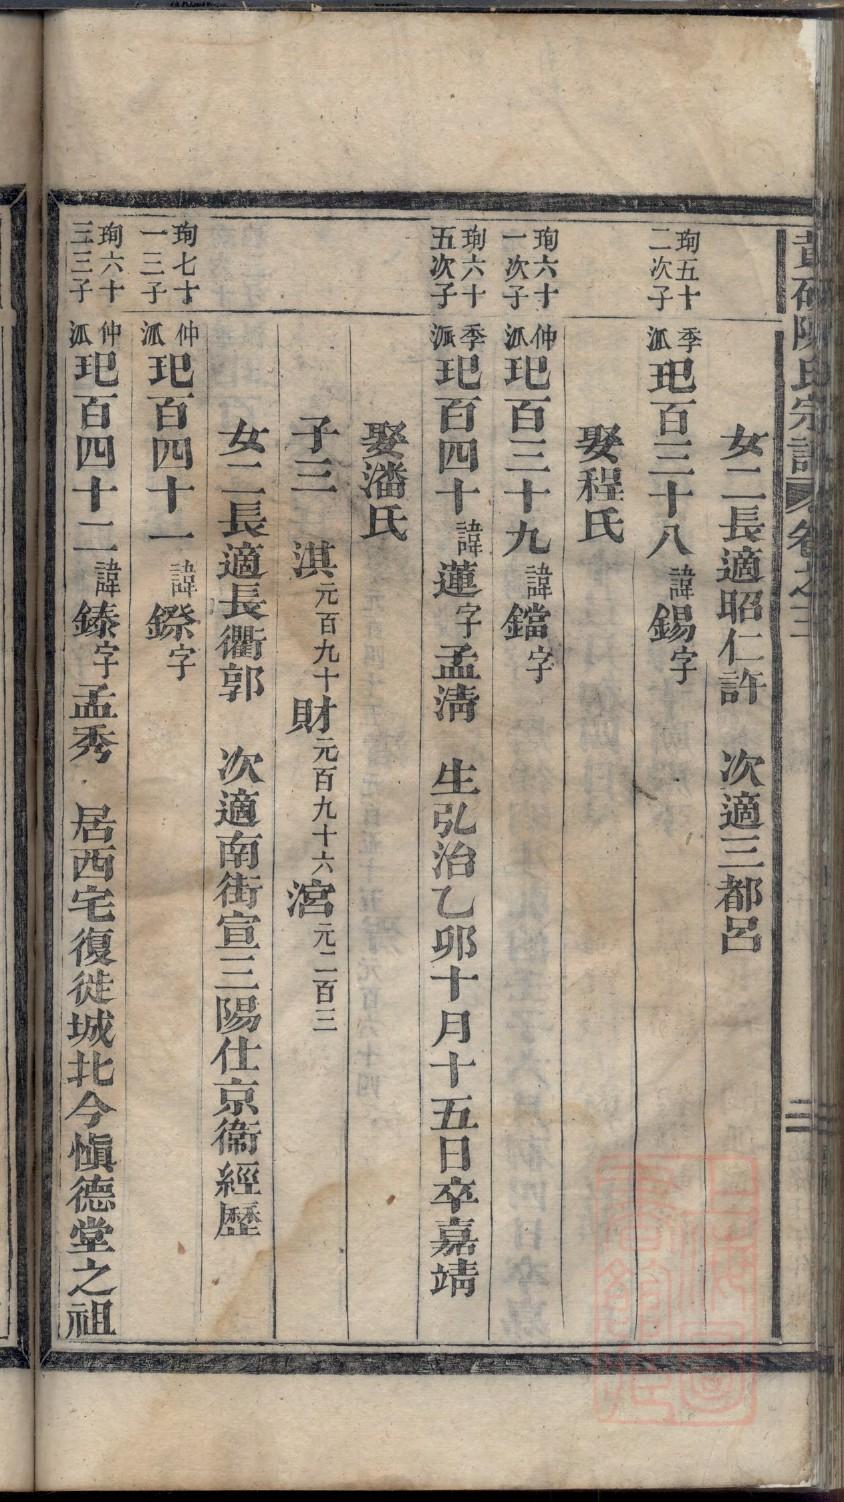 陳氏宗譜 卷之三
女二長適昭仁許 次適三都呂
珣五十二次子 季派玘百三十八諱錫字
娶程氏
珣六十一次子 仲派玘百三十九諱鐺字
珣六十五次子 季派玘百四十諱蓮字孟淸 生弘治乙卯十月十五日卒嘉靖
娶潘氏
子三 淇元百九十財元百九十六宮元二百三
女二長適長衢郭 次適南街宣三陽仕京衞經歷
珣七十一三子 仲派玘百四十一諱鎩字
珣六十三三子 仲派玘百四十二諱鎍字孟秀 居西宅復徙城北今愼德堂之祖
二